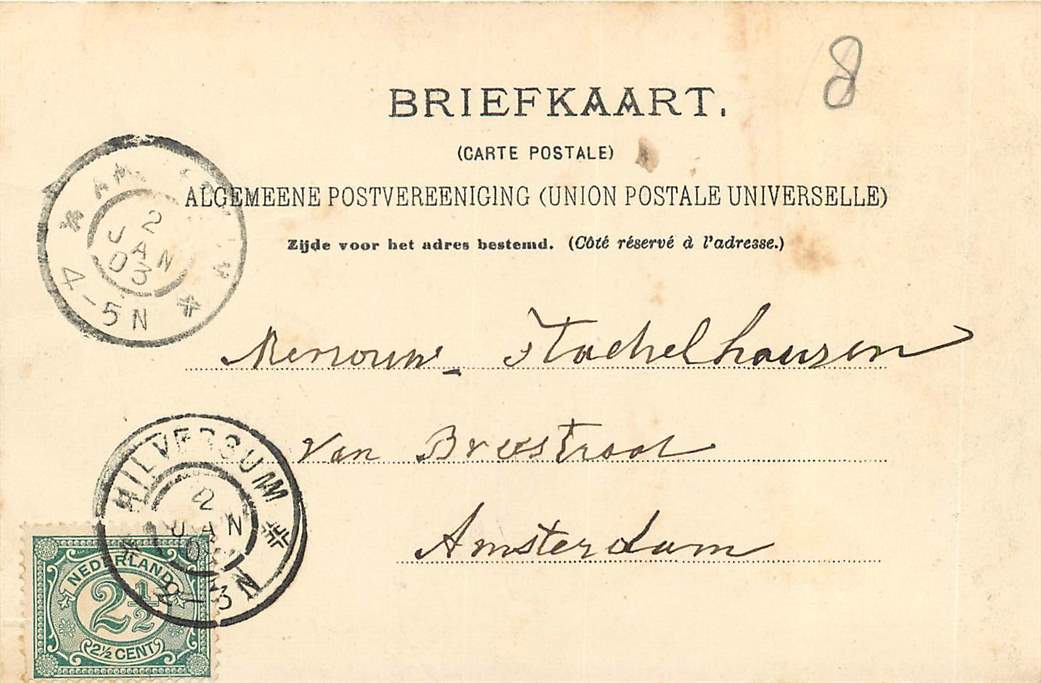 8
BRIEFKAART.
(CARTE POSTALE)
ALGEMEENE POSTVEREENIGING (UNION POSTALE UNIVERSELLE)
Zijde voor het adres bestemd. (Côté réservé à l'adresse.)
2
JAN
03
4-5N
Mevrouw Stachelhausen
van Breestraat
Amsterdam
HILVERSUM
2
JAN
2-3N
NEDERLAND
2½
2½ CENT